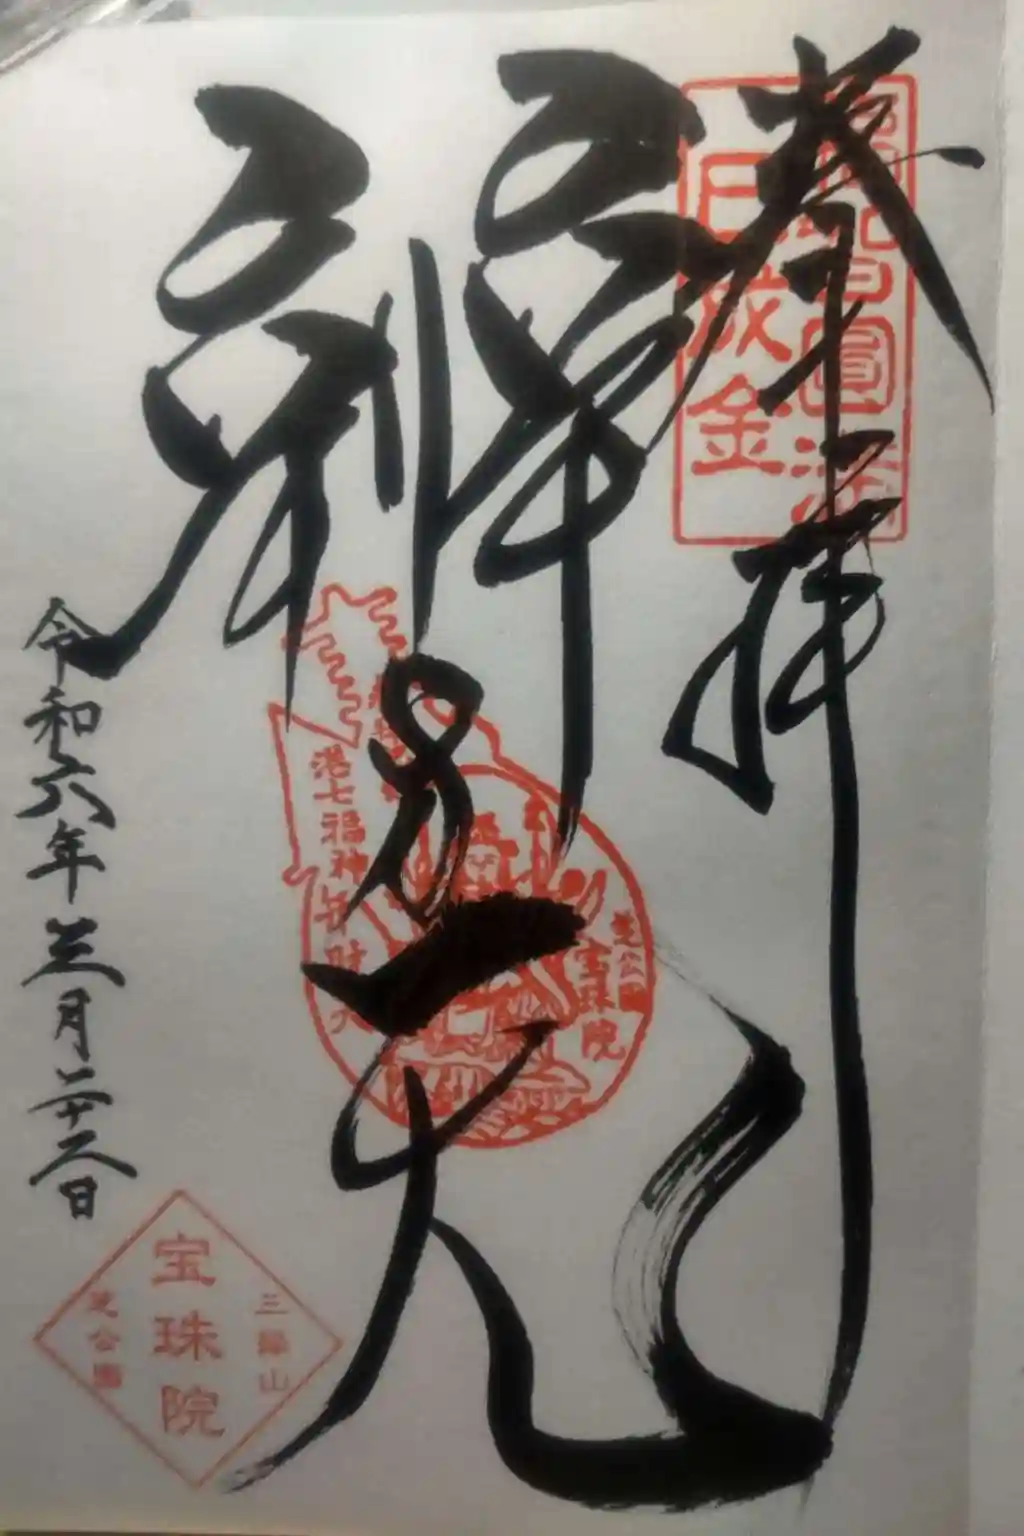 奉拝
辨財天
令和六年三月二十二日
港七福神
弁財天
芝公園
宝珠院
三縁山
宝珠院
芝公園